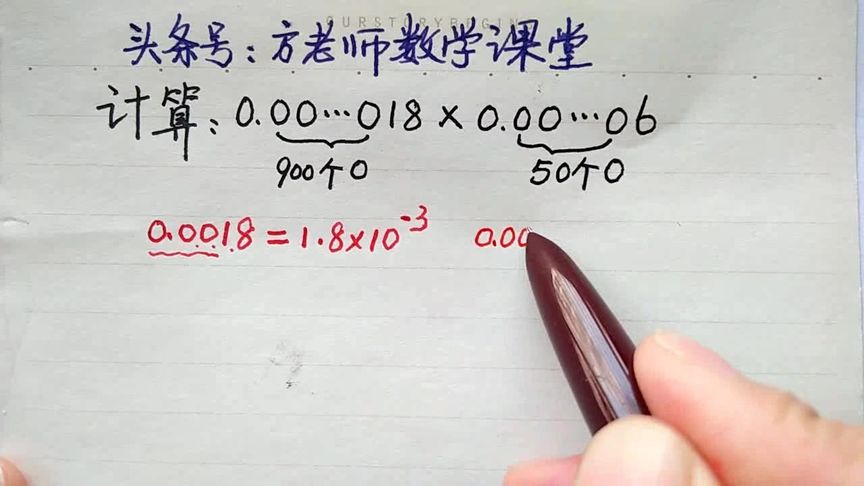 OURSTORYBEGIN
头条号:方老师数学课堂
计算:0.00···018×0.00···06
900个0 50个0
0.0018=1.8×10⁻³ 0.00